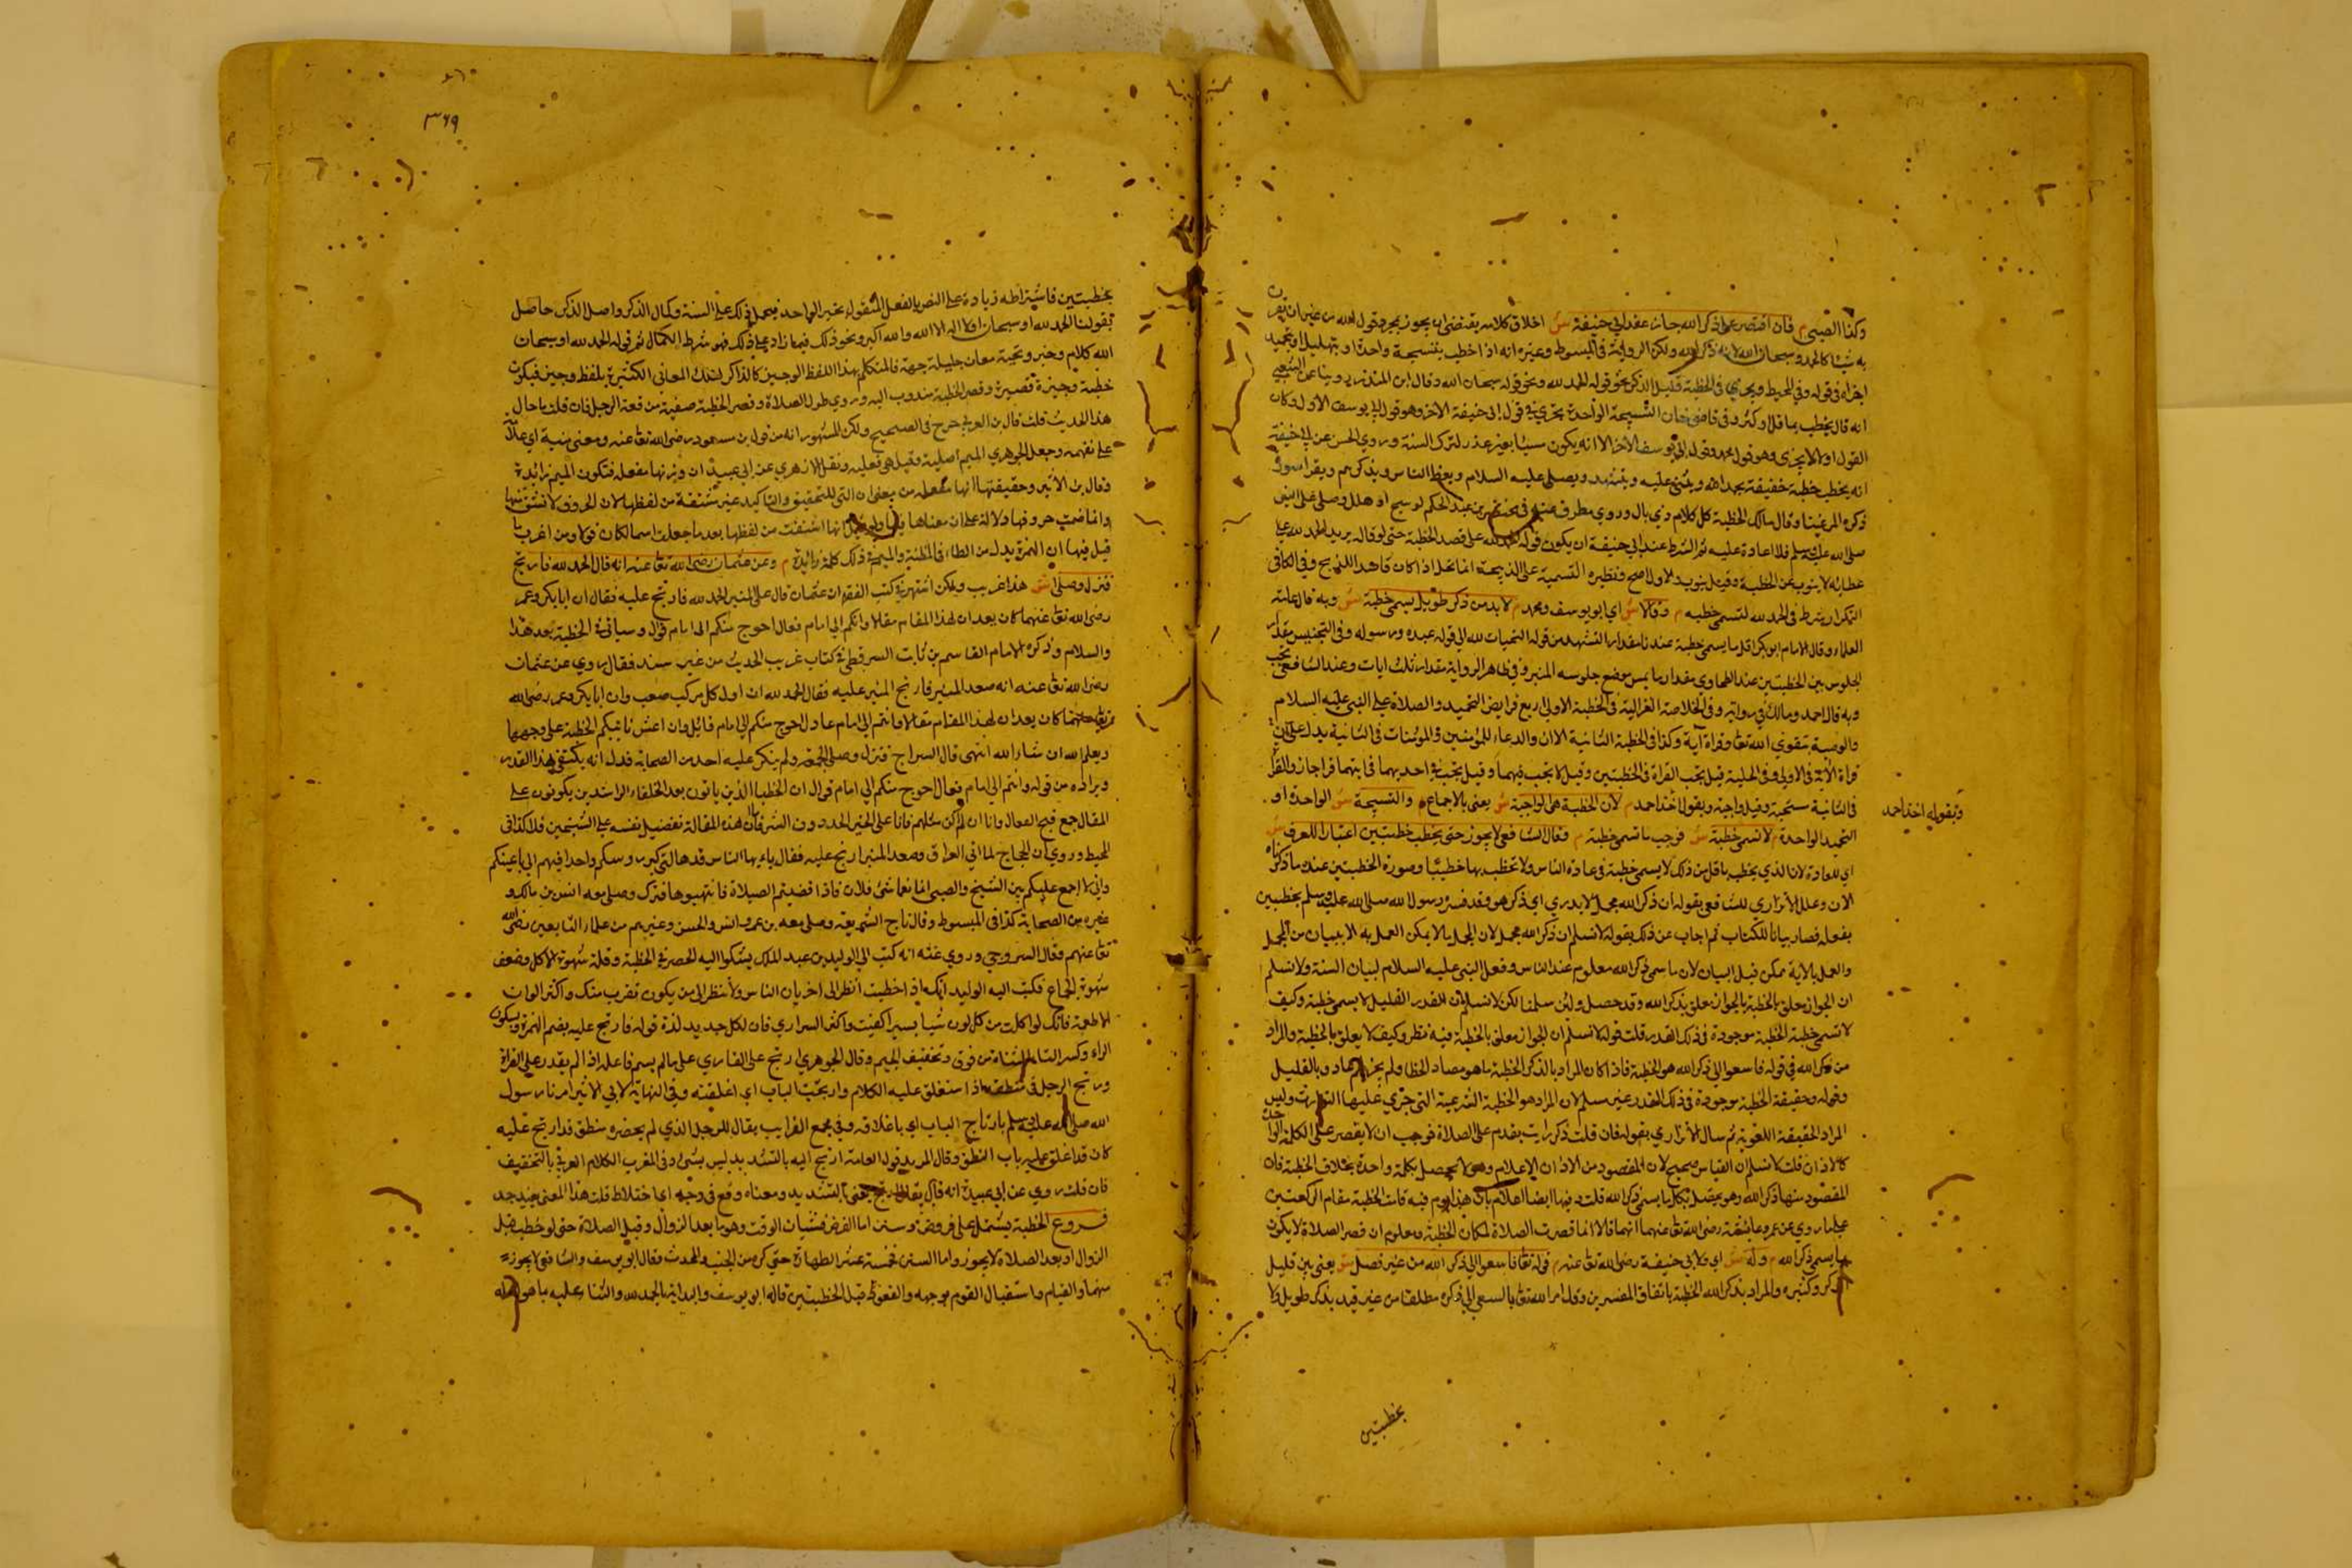 وكذا الصبي م فان اقتصر على ذكر الله جاز عند ابي حنيفة ش اطلاق كلامه يقتضي ان يجوز بمجرد قول الله من غير ان يقرن
به شيئا كالحمد وسبحان الله لانه ذكر الله ولكن الرواية في المبسوط وغيره انه اذا خطب بتسبيحة واحدة او بتهليل او بتحميد
اجزاه في قوله وفي المحيط ويجزي في الخطبة قليل الذكر نحو قوله الحمد لله ونحو قوله سبحان الله وقال ابن المنذر روينا عن الشعبي
انه قال يخطب بما قل او كثر وفي قاضي خان التسبيحة الواحدة تجزي في قول ابي حنيفة الاخر وهو قول ابي يوسف الاول وكان
القول اولا لا يجزي وهو قول محمد وقول ابي يوسف الاخر الا انه يكون مسيئا بغير عذر لترك السنة وروي الحسن عن ابي حنيفة
انه يخطب خطبة خفيفة يحمد الله ويثني عليه ويتشهد ويصلي عليه السلام ويعظ الناس ويذكرهم ويقرا سورة
ذكره المرغيناني وقال مالك الخطبة كل كلام ذي بال وروي مطرف عنه في مختصر بن عبد الحكم لو سبح او هلل وصلى على النبي
صلى الله عليه وسلم فلا اعادة عليه ثم الشرط عند ابي حنيفة ان يكون قوله الحمد لله على قصد الخطبة حتى لو قاله يريد الحمد لله على
عطاسه لا ينوب عن الخطبة وقيل ينوب والاول اصح ونظيره التسمية على الذبيحة انما تحل اذا كان قاصدا للذبح وفي الكافي
النكرار بشرط في الحمد لله لتسمى خطبة م وقالا ش اي ابو يوسف ومحمد م لا بد من ذكر طويل يسمى خطبة ش وبه قال عامة
العلماء وقال الامام ابو بكر اقل ما يسمى خطبة عندنا مقدار التشهد من قوله التحيات لله الى قوله عبده ورسوله وفي التجنيس مقدار
الجلوس بين الخطبتين عند الطحاوي مقدار ما يمس موضع جلوسه المنبر وفي ظاهر الرواية مقدار ثلث ايات وعند الشافعي تجب
وبه قال احمد ومالك في رواية وفي الخلاصة الغزالية في الخطبة الاولى اربع فرايض التحميد والصلاة على النبي عليه السلام
والوصية بتقوى الله تعالى وقراءة آية وكذا في الخطبة الثانية الا ان والدعاء للمؤمنين والمؤمنات في الثانية بدل عن
قراة الآية في الاولى وفي الحلية قيل تجب القراة في الخطبتين وقيل لا تجب فيهما وقيل تجب في احديهما في ايتهما قرا جاز والقراة
في الثانية مستحبة وقيل واجبة وبقولنا اخذ احمد م لان الخطبة هي الواجبة ش يعني بالاجماع م والتسبيحة ش الواحدة او
التحميد الواحدة م لا تسمى خطبة ش فوجب ما تسمى خطبة م وقال الشافعي لا يجوز حتى يخطب خطبتين اعتبارا للعرف ش
اي للعادة لان الذي يخطب باقل من ذلك لا يسمى خطبة في عادة الناس ولا تخطب بها خطيبا وصورة الخطبتين عنده ما ذكرناه
الان وعلل الأترازي للشافعي بقوله أن ذكر الله مجمل لا يدري اي ذكر هو وقد فسره رسول الله صلى الله عليه وسلم بخطبتين
بفعله فصار بيانا للكتاب ثم اجاب عن ذلك بقوله لا نسلم ان ذكر الله مجمل لان المجمل ما لا يمكن العمل به الا ببيان من المجمل
والعمل بالآية ممكن قبل البيان لان ما سمي ذكر الله معلوم عند الناس وفعل النبي عليه السلام لبيان السنة ولا نسلم
ان الجواز معلق بالخطبة بل الجواز معلق بذكر الله وقد حصل ولئن سلمنا لكن لا نسلم ان القدر القليل لا يسمى خطبة وكيف
لا تسمى خطبة الخطبة موجودة في ذلك القدر قلت قوله لا نسلم ان الجواز معلق بالخطبة فيه نظر وكيف لا يعلق بالخطبة والمراد
من ذكر الله في قوله فاسعوا الى ذكر الله هو الخطبة فاذا كان المراد بالذكر الخطبة
وقوله وحقيقة الخطبة موجودة في ذلك القدر غير مسلم لان المراد هو الخطبة الشرعية التي جرى عليها التوارث وليس
المراد الحقيقة اللغوية ثم سال الأترازي بقوله فان قلت ذكر رايت يقدم على الصلاة فوجب ان لا يقصر على الكلمة الواحدة
كالاذان قلت لا نسلم ان القياس صحيح لان المقصود من الاذان الاعلام وهو لا يحصل بكلمة واحدة بخلاف الخطبة فان
المقصود منها ذكر الله وهو يحصل بكل ما يسمى ذكر الله قلت فيها ايضا اعلام بان هذا يوم فيه قامت الخطبة مقام الركعتين
على ما روي عن عمر وعائشة رضي الله تعالى عنهما انهما قالا انما قصرت الصلاة لمكان الخطبة ومعلوم ان قصر الصلاة لا يكون
بما يسمى ذكر الله م وله ش اي ولابي حنيفة رضي الله تعالى عنه م قوله تعالى فاسعوا الى ذكر الله من غير فصل ش يعني بين قليل
الذكر وكثيره والمراد بذكر الله الخطبة باتفاق المفسرين وقد امر الله تعالى بالسعي الى ذكره مطلقا من غير قيد بذكر طويل
وبقوله اخذ احمد
بخطبتين
٣٦٩
بخطبتين فاشتراطه زيادة على النص بالفعل المنقول بخبر الواحد فيحمل ذلك على السنة وكمال الذكر واصل الذكر حاصل
بقولنا الحمد لله او سبحان الله لا اله الا الله والله اكبر ونحو ذلك فيما زاد على ذلك فهو شرط الكمال ثم قوله الحمد لله او سبحان
الله كلام وخبر وتحته معان جليلة جمة فالمتكلم بهذا اللفظ الوجيز كالذاكر لتلك المعاني الكثيرة بلفظ وجيز فيكون
خطبة وجيزة قصيرة وقصر الخطبة مندوب اليه وروي طول الصلاة وقصر الخطبة من فقه الرجل فان قلت ما حال
هذا الحديث قلت قال بن العربي خرج في الصحيح ولكن المشهور انه من قول بن مسعود رضي الله تعالى عنه ومعنى مئنة اي علامة
على تفهمه وجعل الجوهري الميم اصلية وقيل هي فعلية ونقل الازهري عن ابي عبيد ان وزنها مفعلة فتكون الميم زائدة
وقال بن الاثير وحقيقتها انها مفعلة من معنى ان التي للتحقيق والتاكيد غير مشتقة من لفظها لان الحروف لا تشتق منها
وانما ضمت حروفها دلالة على ان معناها فيها ولو قيل انها اشتقت من لفظها بعد ما جعلت اسما لكان قولا ومن اغرب ما
قيل فيها ان الهمزة بدل من الظاء في المظنة والميم في ذلك كله زائدة م وعن عثمان رضي الله تعالى عنه انه قال الحمد لله فارتج
فنزل وصلى ش هذا غريب ولكن اشتهر في كتب الفقه ان عثمان قال على المنبر الحمد لله فارتج عليه فقال ان ابا بكر وعمر
رضي الله تعالى عنهما كان يعدان لهذا المقام مقالا وانكم الى امام فعال احوج منكم الى امام قوال وسياتي الخطبة بعد هذا
والسلام وذكره الامام القاسم بن ثابت السرقسطي في كتاب غريب الحديث من غير سند فقال روي عن عثمان
رضي الله تعالى عنه انه صعد المنبر فارتج المنبر عليه فقال الحمد لله ان اول كل مركب صعب وان ابا بكر وعمر رضي الله
تعالى عنهما كان يعدان لهذا المقام مقالا وانتم الى امام عادل احوج منكم الى امام قائل وان اعش تاتيكم الخطبة على وجهها
ويعلم الله ان شاء الله انتهى قال السراج فنزل وصلى الجمعة ولم ينكر عليه احد من الصحابة فدل انه يكتفى بهذا القدر
ومراده من قوله وانتم الى امام فعال احوج منكم الى امام قوال ان الخطباء الذين ياتون بعد الخلفاء الراشدين يكونون على
المقال مع قبح الفعال وانا ان لم اكن مثلهم فانا على الخير الحدوث الشرفان هذه المقالة تفضيل نفسه على الشيخين فلا كذا في
المحيط وروي ان الحجاج لما اتى العراق وصعد المنبر ارتج عليه فقال يا ايها الناس قد هالني كبر روسكم واحداقكم الى باعينكم
واني لا اجمع عليكم بين الشيخ والصبي انما نعما شئ فلان فاذا قضيتم الصلاة فانتهبوها فنزل وصلى معه انس بن مالك و
غيره من الصحابة كذا في المبسوط وقال تاج الشريعة وصلى معه بن عمر وانس والحسن وغيرهم من علماء التابعين رضي الله
تعالى عنهم وقال السروجي وروي عنه انه كتب الى الوليد بن عبد الملك يشكوا اليه الحصر في الخطبة وقلة شهوة الاكل وضعف
شهوة الجماع فكتب اليه الوليد انك اذا خطبت انظر الى اخريات الناس ولا تنظر الى من يكون بقرب منك واكثر الوان
الاطعمة فانك لو اكلت من كل لون شيئا يسيرا كفيت واكثر السراري فان لكل جديد لذة قوله فارتج عليه بضم الهمزة وسكون
الراء وكسر التاء المثناة من فوق وتخفيف الجيم وقال الجوهري ارتج على القاري على ما لم يسم فاعله اذا لم يقدر على القراة
ورتج الرجل في منطقه اذا استغلق عليه الكلام وارتجت الباب اي اغلقته وفي النهاية لابي الاثير امرنا رسول
الله صلى الله عليه وسلم بارتاج الباب اي باغلاقه وفي مجمع الغرايب يقال للرجل الذي لم يحضره منطق قد ارتج عليه
كان قد اغلق عليه باب النطق وقال المبرد قول العامة ارتج اليه بالتشديد ليس بشئ وفي المغرب الكلام العربي بالتخفيف
فان قلت روي عن ابي عبيدة انه قال يقال ارتج يعني بالتشديد ومعناه وقع في رجة اي اختلاط قلت هذا المعنى بعيد جد
فروع الخطبة يشتمل على فروض وسنن اما الفرض فشيان الوقت وهو ما بعد الزوال وقبل الصلاة حتى لو خطب قبل
الزوال او بعد الصلاة لا يجوز واما السنن خمسة عشر الطهارة حتى كره من الجنب والمحدث وقال ابو يوسف والشافعي لا يجوز
منهما والقيام واستقبال القوم بوجهه والقعود قبل الخطبتين قاله ابو يوسف والبداية بالحمد لله والثناء عليه بما هو اهله